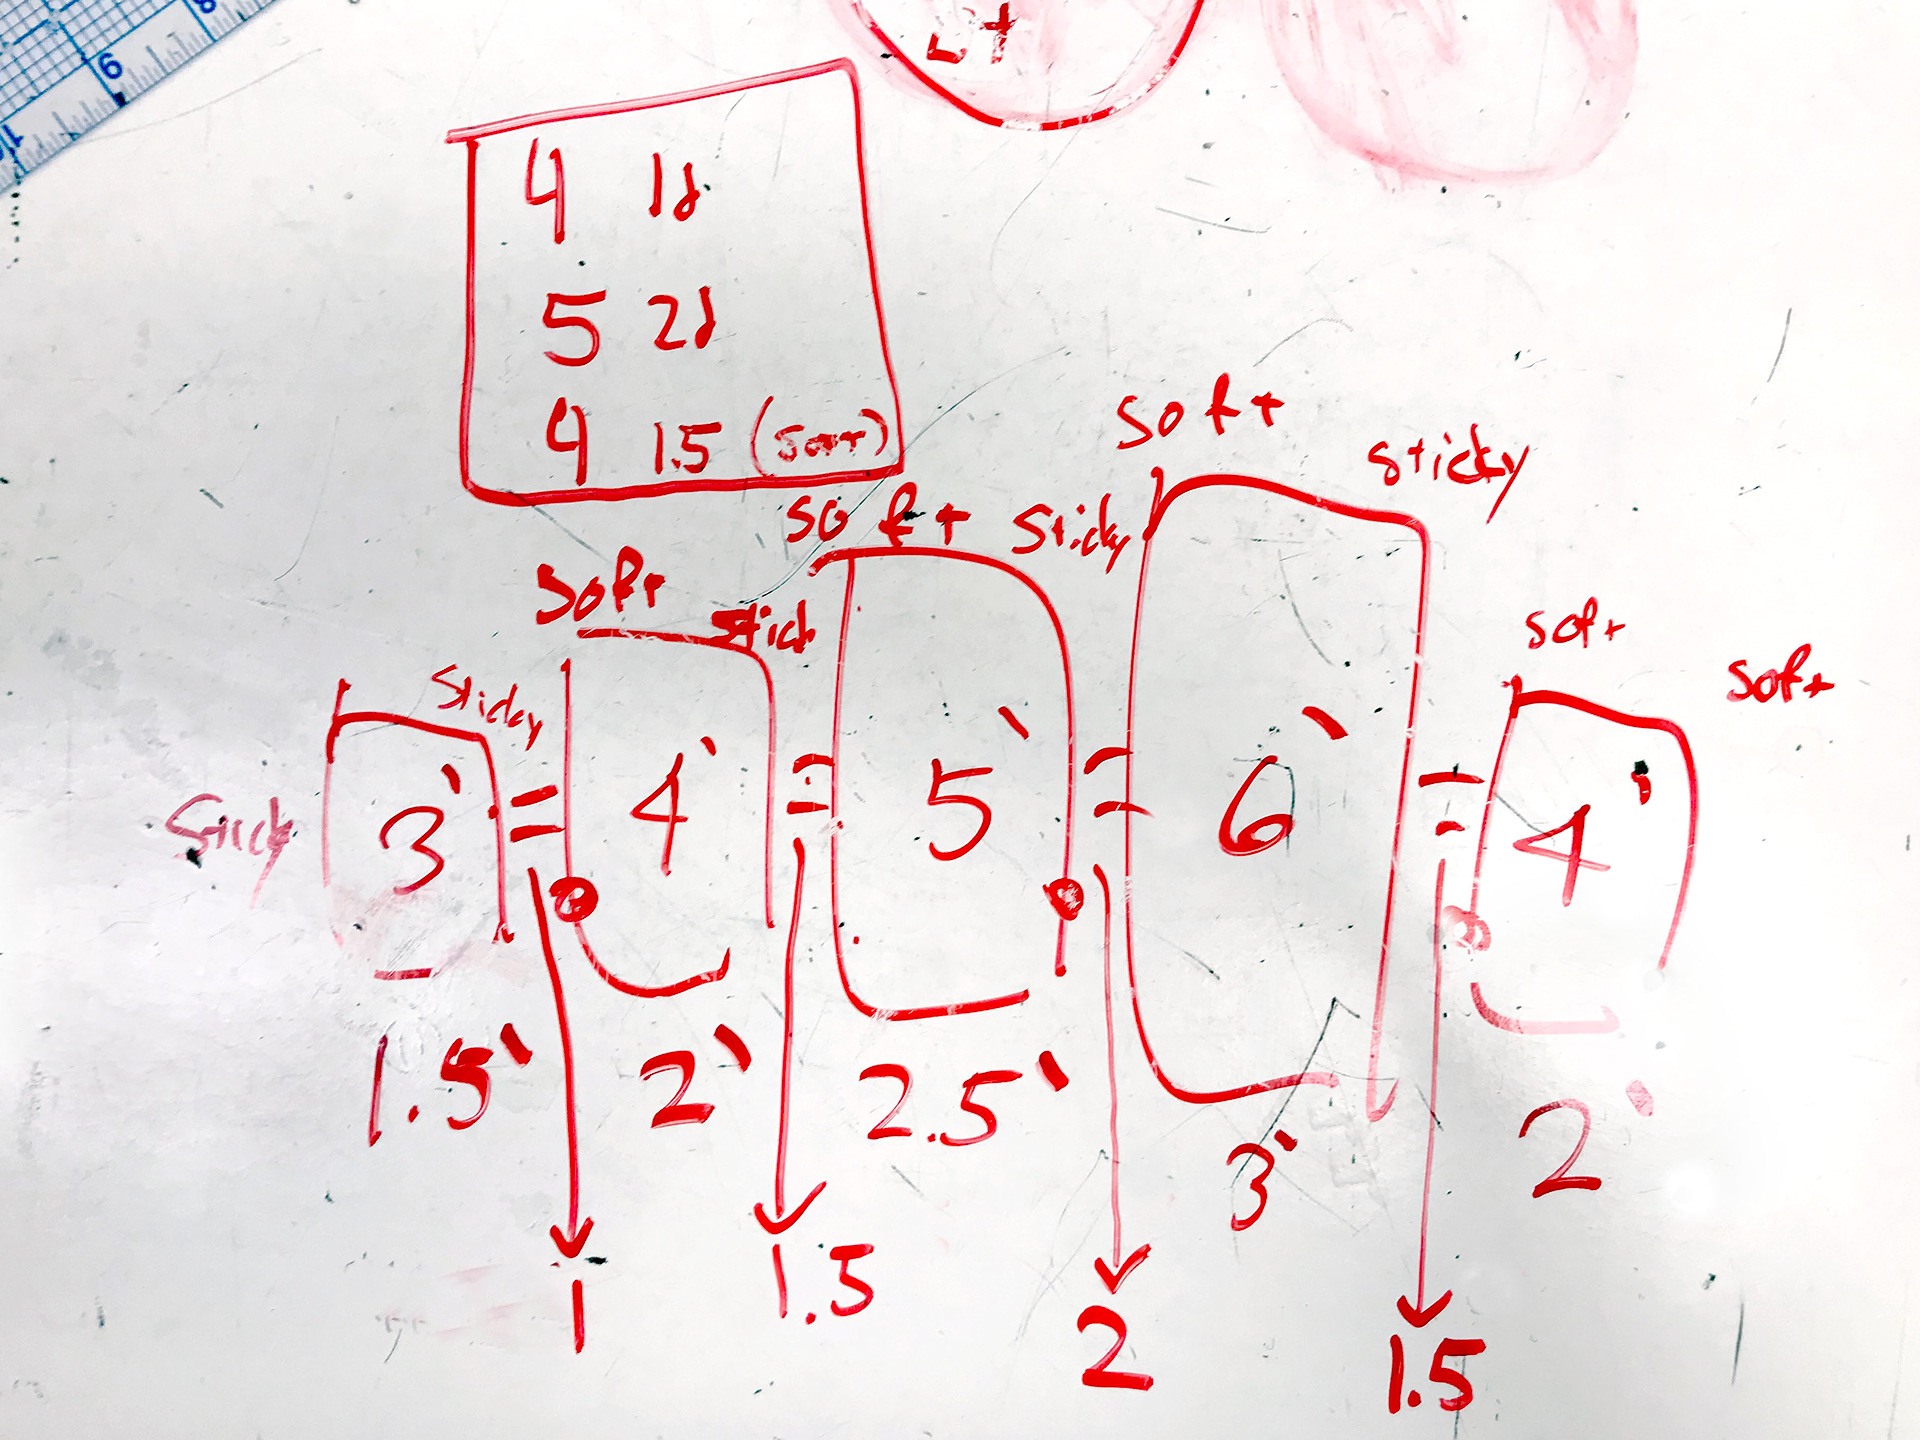 4 1d
5 2d
4 1.5 (soft)
soft sticky
soft sticky
soft stick
sticky
soft
soft
sticky
3' = 4' = 5' = 6' = 4'
1.5' 2' 2.5' 3' 2'
1 1.5 2 1.5
8
9
10